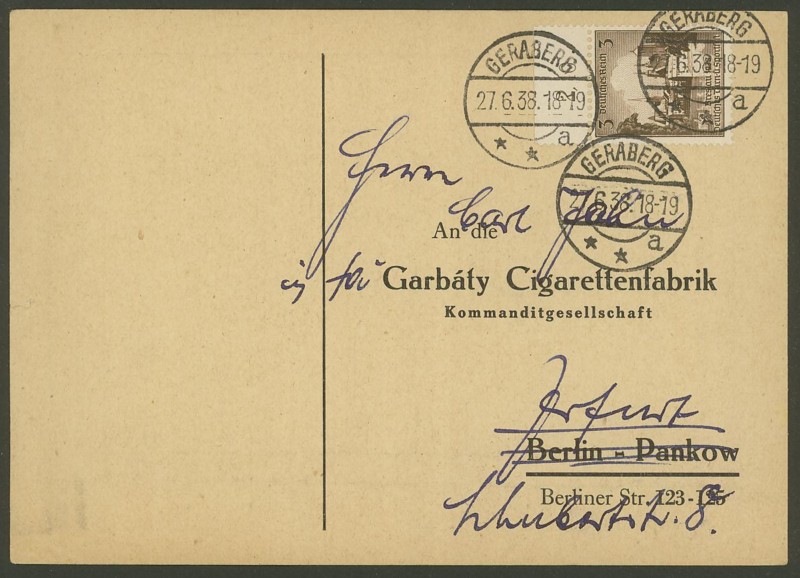 GERABERG
27.6.38.18-19
a
GERABERG
6.38.18-19
a
GERABERG
27.6.38.18-19
a
3 Deutsches Reich 3
Herrn
Carl Jahn
An die
in fa
Garbáty Cigarettenfabrik
Kommanditgesellschaft
Erfurt
Berlin - Pankow
Berliner Str. 123-125
Schubertstr. 8